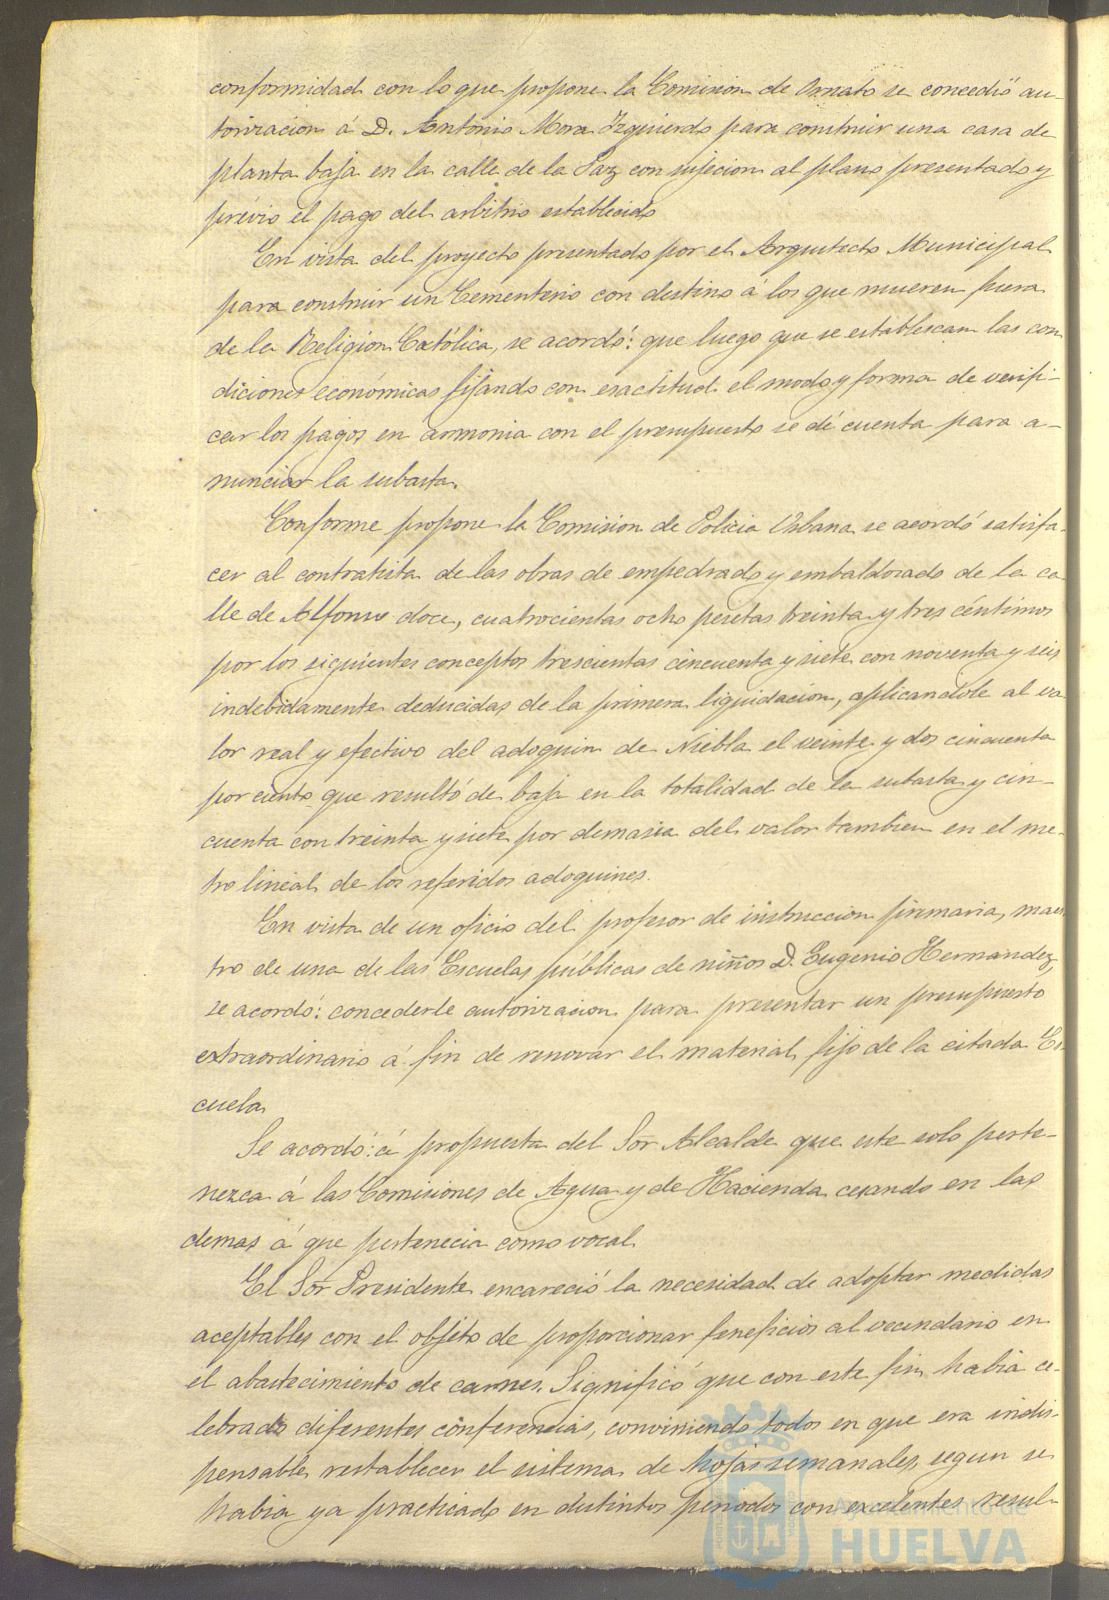 conformidad con lo que propone la Comision de Ornato se concedió au-
torizacion á D. Antonio Mora Izquierdo para construir una casa de
planta baja en la calle de la Paz con sujecion al plano presentado y
prévio el pago del arbitrio establecido
En vista del proyecto presentado por el Arquitecto Municipal
para construir un Cementerio con destino á los que mueren fuera
de la Religión Católica, se acordó: que luego que se establescan las con
diciones económicas fijando con exactitud el modo y forma de verifi-
car los pagos en armonia con el presupuesto se dé cuenta para a-
nunciar la subasta.
Conforme propone la Comision de Policia Urbana se acordó satisfa-
cer al contratista de las obras de empedrado y embaldosado de la ca
lle de Alfonso doce, cuatrocientas ocho pesetas treinta y tres céntimos
por los siguientes conceptos trescientas cincuenta y siete con noventa y seis
indebidamente deducidas de la primera liquidacion, aplicandole al va
lor real y efectivo del adoquin de Niebla el veinte y dos cincuenta
por ciento que resultó de baja en la totalidad de la subasta y cin-
cuenta con treinta y siete por demasia del valor tambien en el me-
tro lineal de los referidos adoquines.
En vista de un oficio del profesor de instruccion primaria, maes
tro de una de las Escuelas públicas de niños D. Eugenio Hernandez,
se acordó: concederle autorizacion para presentar un presupuesto
extraordinario á fin de renovar el material fijo de la citada Es-
cuela
Se acordó: á propuesta del Sor Alcalde que este solo perte-
nezca á las Comisiones de Agua y de Hacienda cesando en las
demas á que pertenecia como vocal
El Sor Presidente encareció la necesidad de adoptar medidas
aceptables con el objeto de proporcionar beneficios al vecindario en
el abastecimiento de carnes. Significó que con este fin habia ce-
lebrado diferentes conferencias, conviniendo todos en que era indis-
pensable restablecer el sistema de hojas semanales segun se
habia ya practicado en distintos periodos con excelentes resul-
Ayuntamiento de
HUELVA